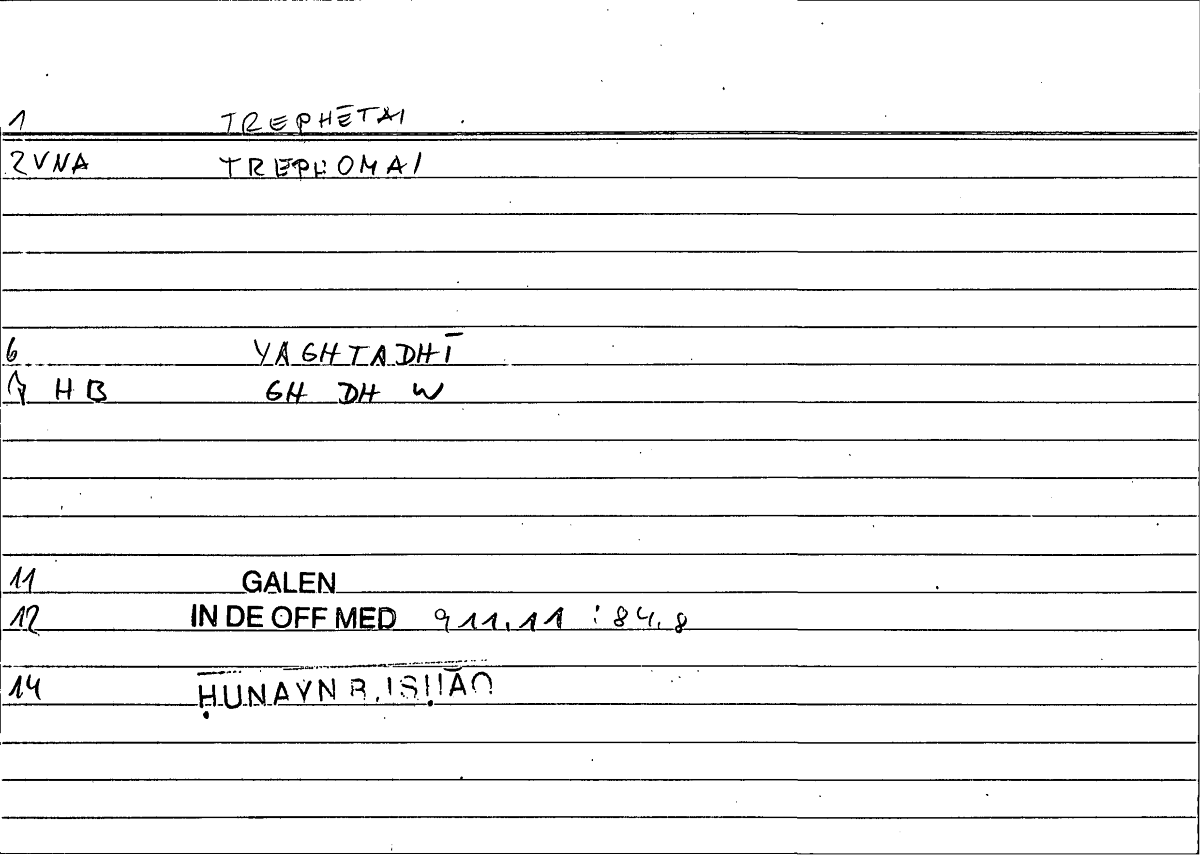 1 TREPHĒTAI
2VNA TREPHOMAI
6 YAGHTADHĪ
HB GH DH W
11 GALEN
12 IN DE OFF MED 911.11 : 84.8
14 ḤUNAYN B. ISḤĀQ